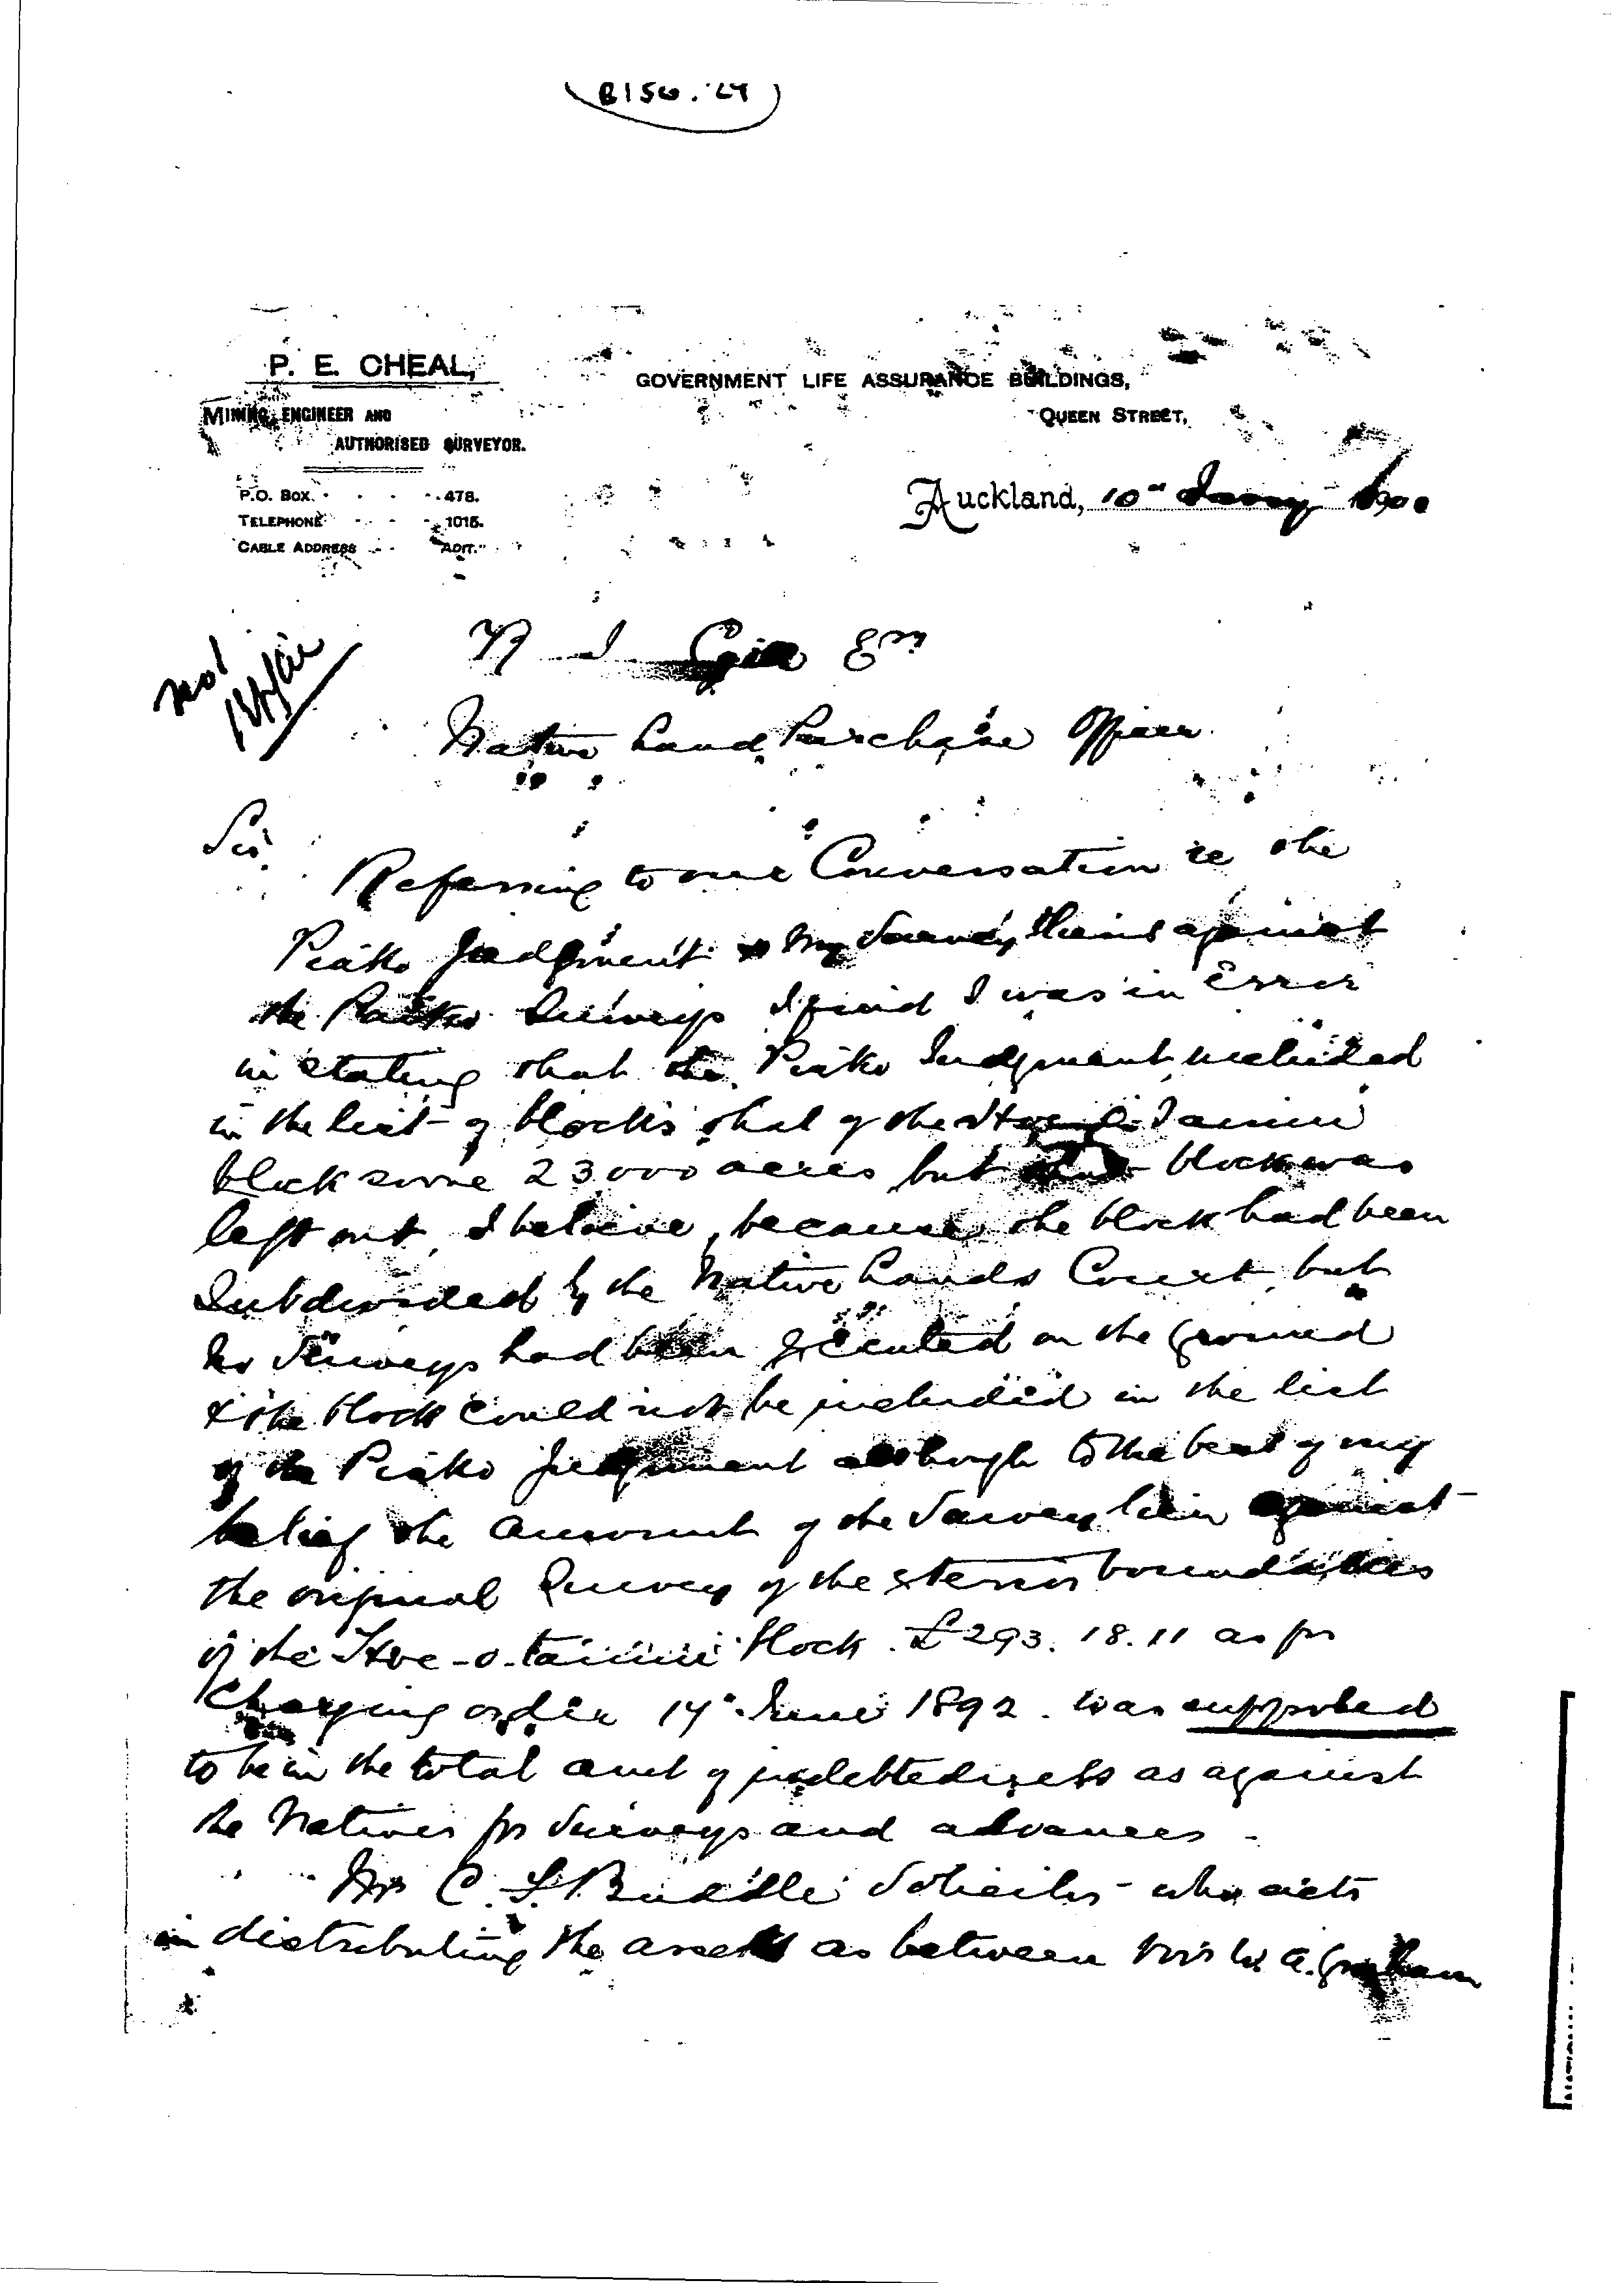 B156.24
P. E. CHEAL,
MINING ENGINEER AND
AUTHORISED SURVEYOR.
GOVERNMENT LIFE ASSURANCE BUILDINGS,
QUEEN STREET,
P.O. BOX 478.
TELEPHONE 1015.
CABLE ADDRESS "ADIT."
Auckland, 10th Jany 1900
No 1
Gill Esq
Native Land Purchase Officer
Sir,
Referring to our Conversation re the
Piako Judgment & my Survey liens against
the Piako Surveys I find I was in Error
in stating that the Piako Judgment included
in the list of blocks that of the Hoe-o-Tainui
block some 23000 acres but that block was
left out, I believe, because the block had been
Subdivided by the Native Lands Court, but
no Surveys had been executed on the ground
& the block could not be included in the list
of the Piako Judgment although to the best of my
belief the amount of the Survey lien against
the original Survey of the external boundaries
of the Hoe-o-tainui block £293.18.11 as per
Charging order 14th June 1892 was supposed
to be in the total amt of indebtedness as against
the Natives for Surveys and advances.
Mr C. Buddle Solicitor who acts
in distributing the assets as between Mr W. A. Graham